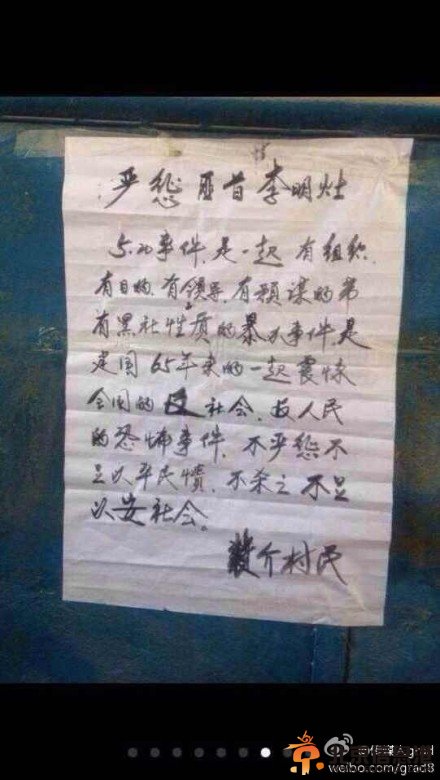 严惩匪首李明灶
5.20事件,是一起有组织.
有目的.有领导.有预谋的带
有黑社性质的暴力事件是
建国65年来的一起震惊
全国的反社会、反人民
的恐怖事件,不严惩不
足以平民愤,不杀之不足
以安社会。
介村民
weibo.com/grad8